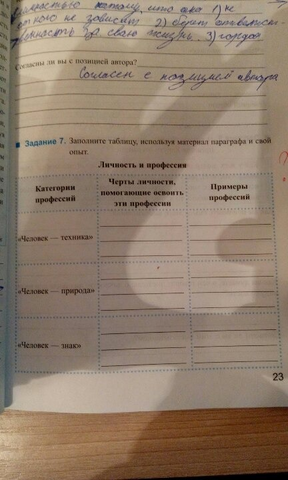 потому, что она 1) не
от кого не зависит 2) берет ответствен-
ность за свою жизнь. 3) гордая
Согласны ли вы с позицией автора?
Согласен с позицией автора
Задание 7. Заполните таблицу, используя материал параграфа и свой
опыт.
Личность и профессия
Категории
профессий
Черты личности,
помогающие освоить
эти профессии
Примеры
профессий
«Человек — техника»
«Человек — природа»
«Человек — знак»
23